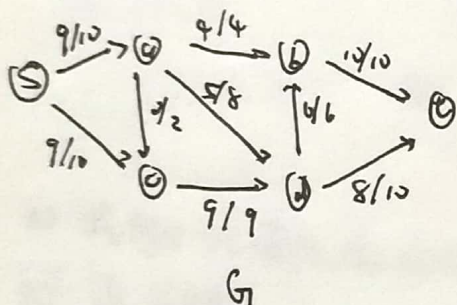 9/10 a 4/4 b 10/10
S 5/8 t
0/2 6/6
9/10 c 9/9 d 8/10
G